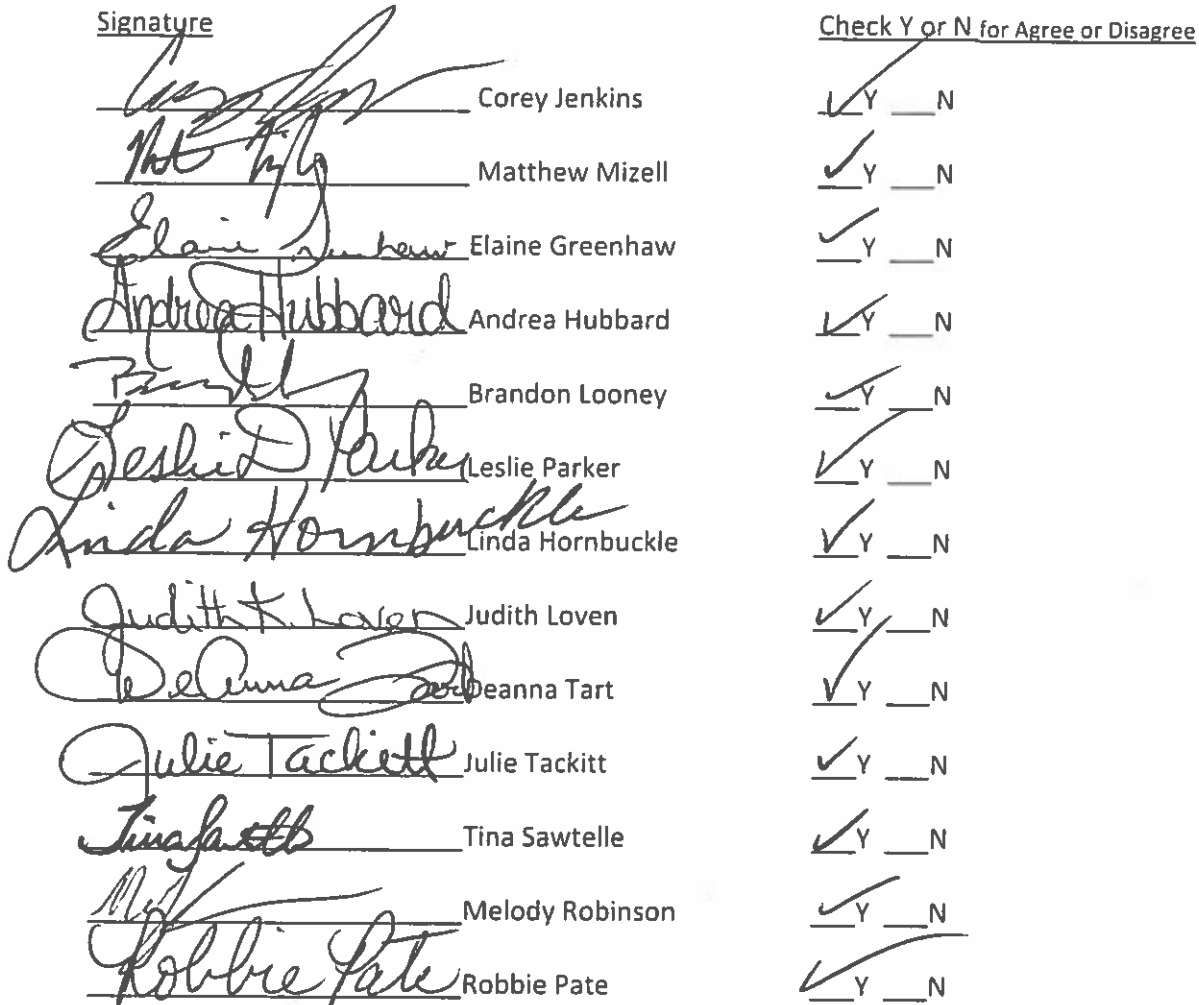 Signature Check Y or N for Agree or Disagree
Corey Jenkins ✓Y ___N
Matthew Mizell ✓Y ___N
Elaine Greenhaw Elaine Greenhaw ✓Y ___N
Andrea Hubbard Andrea Hubbard ✓Y ___N
Brandon Looney ✓Y ___N
Leslie D Parker Leslie Parker ✓Y ___N
Linda Hornbuckle Linda Hornbuckle ✓Y ___N
Judith K. Loven Judith Loven ✓Y ___N
DeAnna Tart Deanna Tart ✓Y ___N
Julie Tackett Julie Tackitt ✓Y ___N
Tina Sawtelle ✓Y ___N
Melody Robinson ✓Y ___N
Robbie Pate Robbie Pate ✓Y ___N